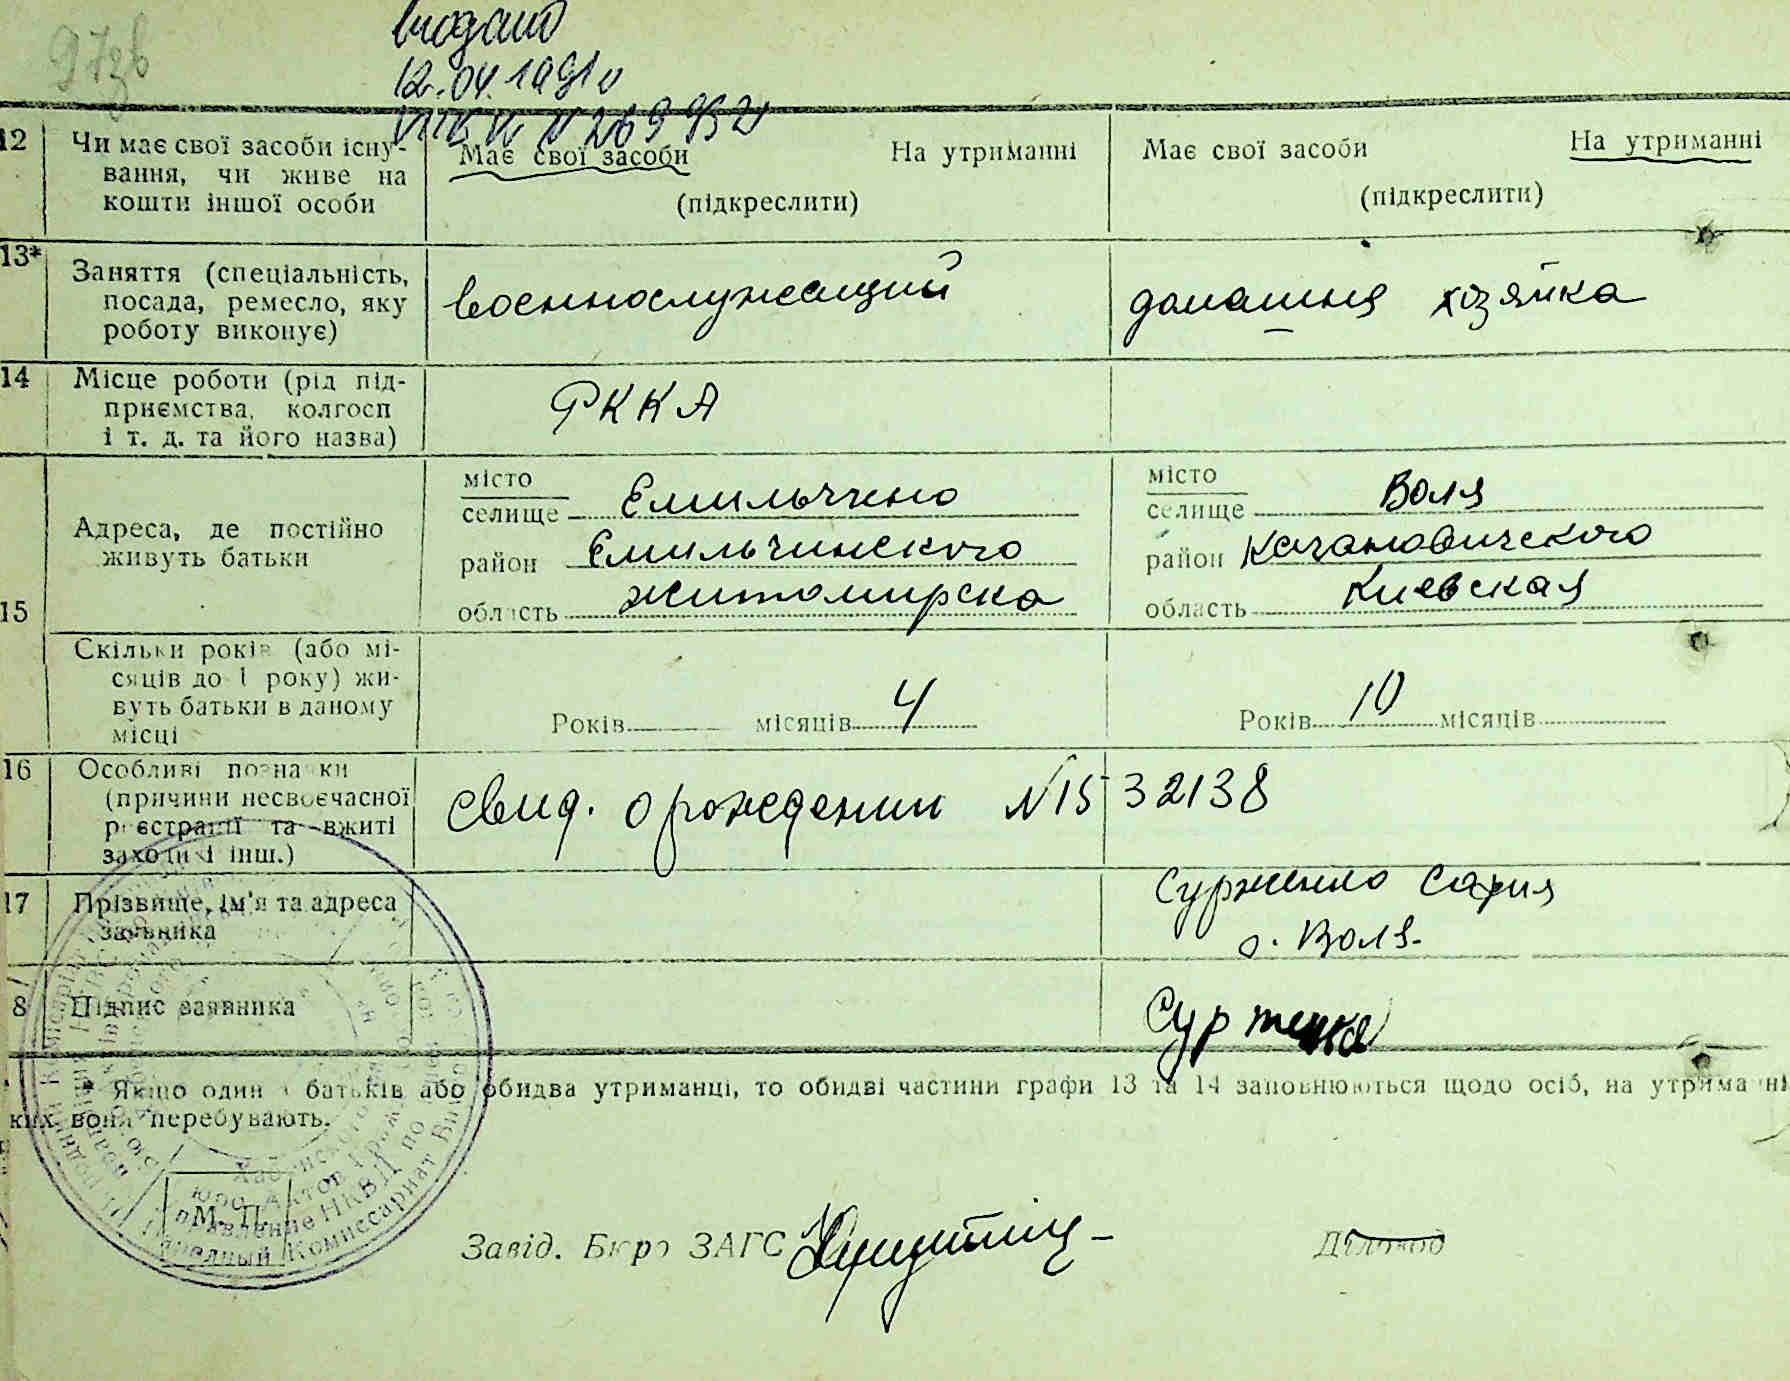 12.04.
12 Чи має свої засоби існу-
вання, чи живе на
кошти іншої особи
Має свої засоби На утриманні
(підкреслити)
Має свої засоби На утриманні
(підкреслити)
13* Заняття (спеціальність,
посада, ремесло, яку
роботу виконує)
военнослужащий
домашня хозяйка
14 Місце роботи (рід під-
приємства, колгосп
і т. д. та його назва)
РККА
15 Адреса, де постійно
живуть батьки
місто
селище Емильчино
район Емильчинского
область житомирска
місто
селище Воля
район
область Киевская
Скільки років (або мі-
сяців до 1 року) жи-
вуть батьки в даному
місці
Років місяців 4
Років 10 місяців
16 Особливі познаки
(причини несвоєчасної
реєстрації та вжиті
заходи і інш.)
свид. о рождении N1532138
17 Прізвище, ім'я та адреса
заявника
Сурженко
с. Воля.
8 Підпис заявника
Сурженко
* Якщо один з батьків або обидва утриманці, то обидві частини графи 13 та 14 заповнюються щодо осіб, на утриманні
ких вони перебувають.
М. П.
Завід. Бюро ЗАГС
Діловод